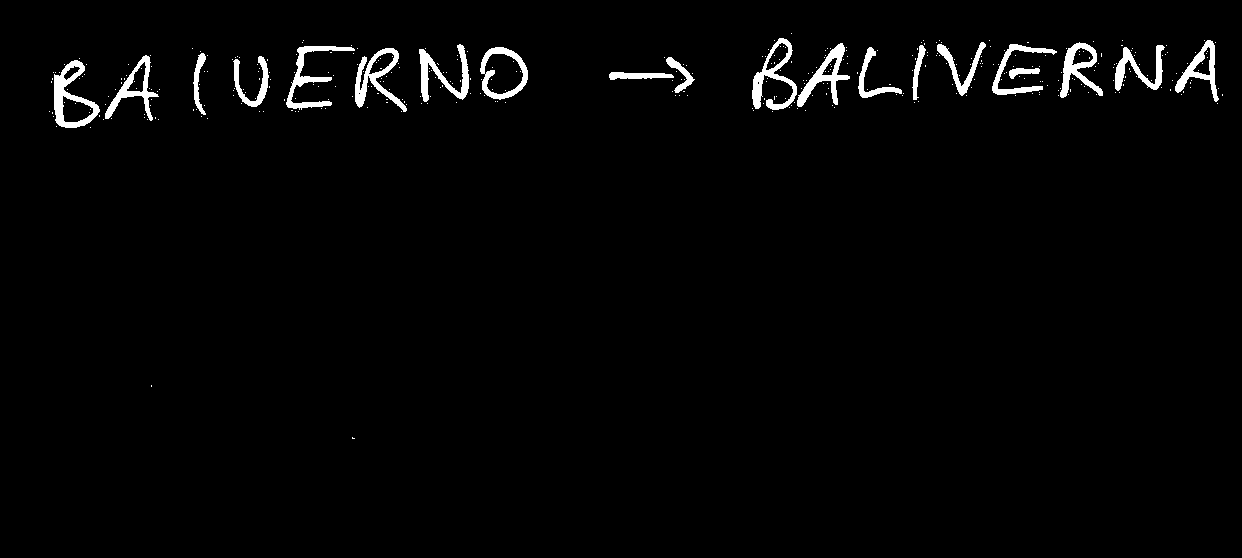 BAIUERNO → BALIVERNA